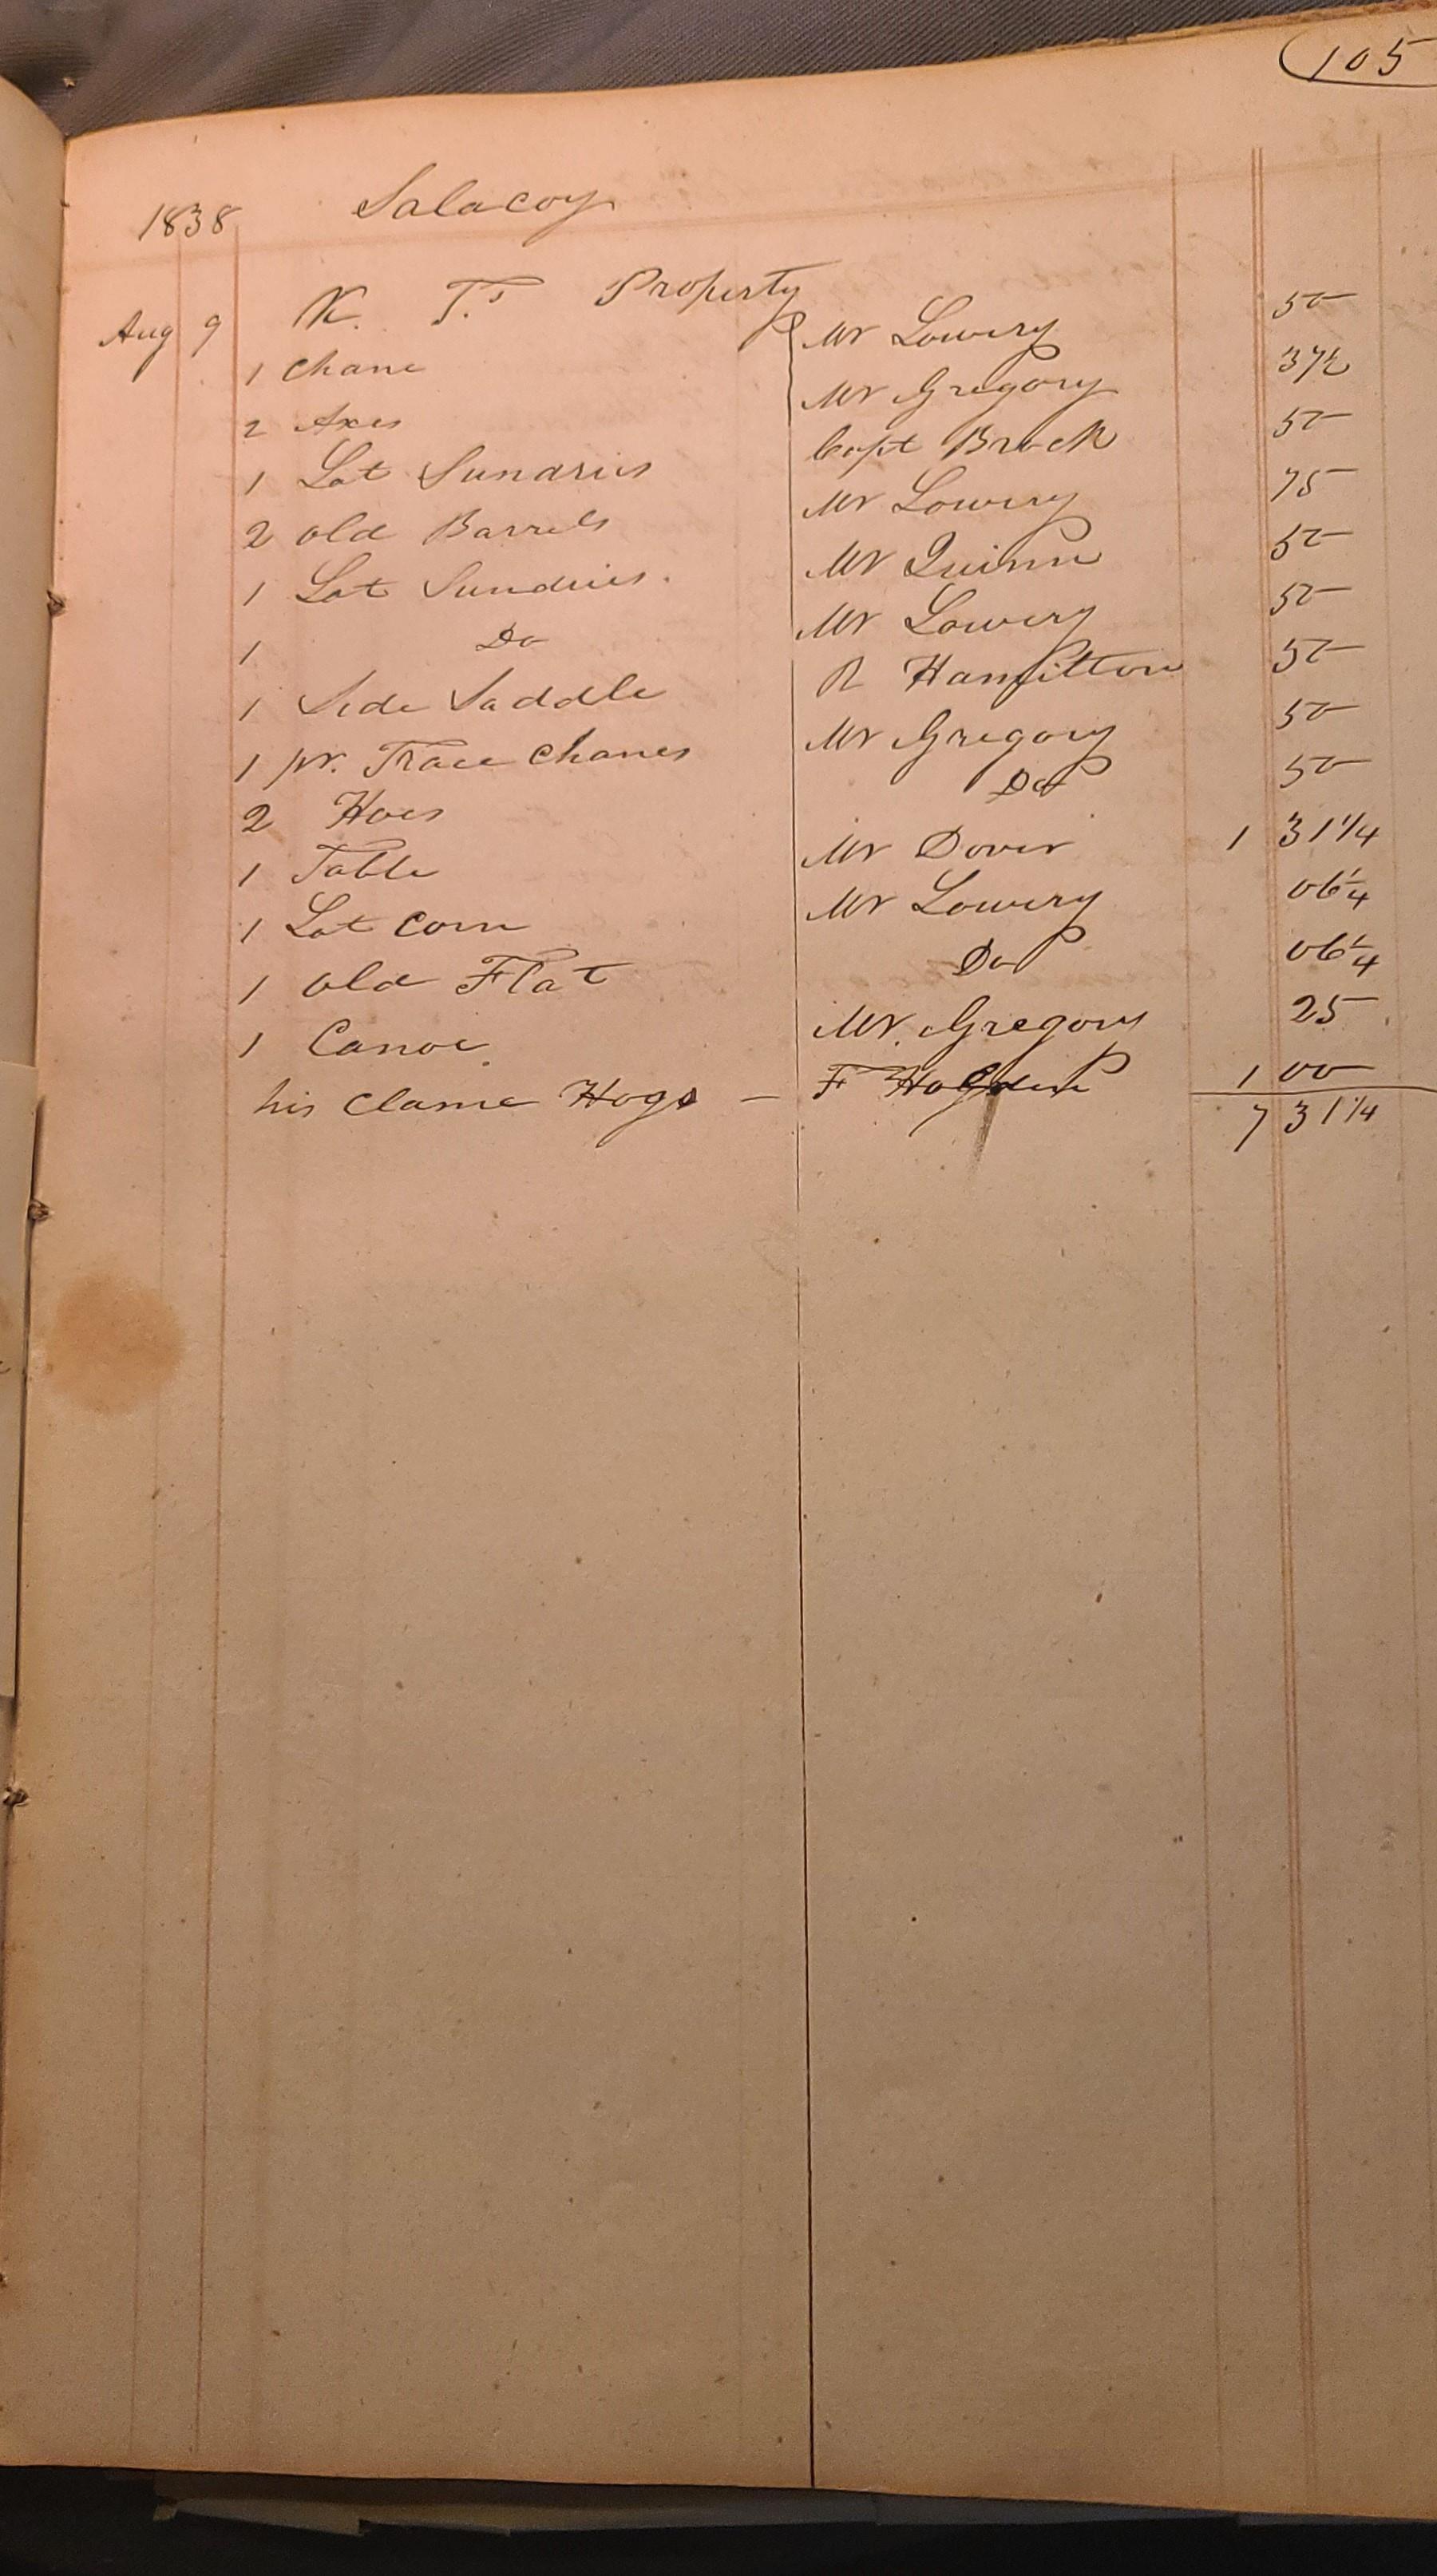 105
1838 Salacoy
Aug 9 K. T.s Property
1 Chane Mr Lowery 50
2 Axes Mr Gregory 37½
1 Lot Sundries Capt Brock 50
2 old Barrels Mr Lowery 75
1 Lot Sundries. Mr Quinn 50
1 Do Mr Lowery 50
1 Side Saddle R Hamilton 50
1 pr. Trace Chanes Mr Gregory 50
2 Hoes Do 50
1 Table Mr Dover 1 31¼
1 Lot Corn Mr Lowery 06¼
1 old Flat Do 06¼
1 Canoe Mr. Gregory 25
his Clame Hogs – F 1 00
7 31¼